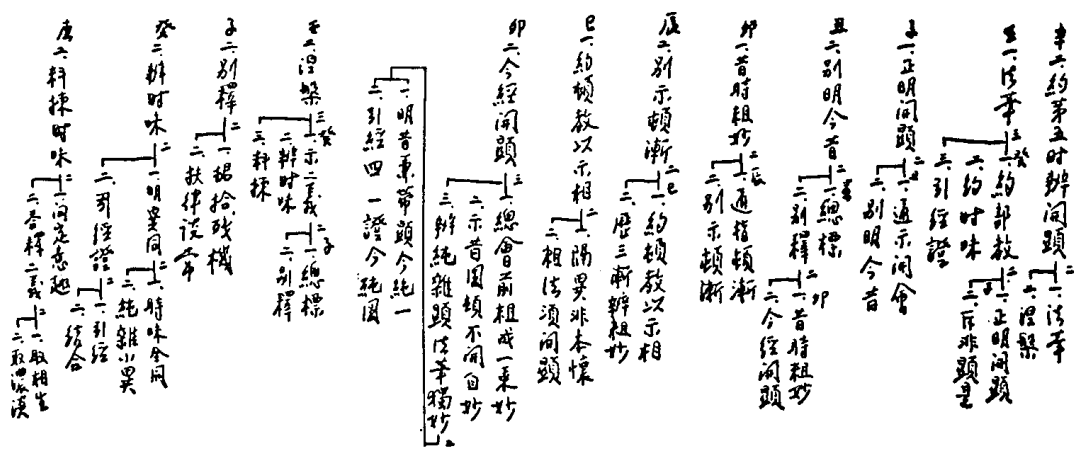 辛二、約第五时辨開顯 二
一、法華
二、涅槃
壬一、法華 三 癸
一、約部教 二 子
一、正明開顯
二、斥非顯是
二、約时味
三、引經證
子一、正明開顯 二
一、通示開會
二、別明今昔
丑二、別明今昔 二
一、總標
二、別釋 二 卯
一、昔時粗妙
二、今經開顯
卯一、昔時粗妙 二 辰
一、通指頓漸
二、別示頓漸
辰二、別示頓漸 二 巳
一、約頓教以示相
二、歷三漸辨粗妙
巳一、約頓教以示相 二
一、隔異非本懷
二、粗法須開顯
卯二、今經開顯 三
一、總會前粗成一乘妙
二、示昔圓頓不開自妙
三、辨純雜顯法華獨妙 二
一、明昔兼帶顯今純一
二、引經四一證今純圓
壬二、涅槃 三 癸
一、示二義 二 子
一、總標
二、別釋
二、辨时味
三、料揀
子二、別釋 二
一、捃拾殘機
二、扶律談常
癸二、辨时味 二
一、明異同 二
一、時味全同
二、純雜小異
二、引經證 二
一、引經
二、結合
庚二、料揀时味 二
一、問定意趣
二、答釋二義 二
一、取相生
二、取濃淡